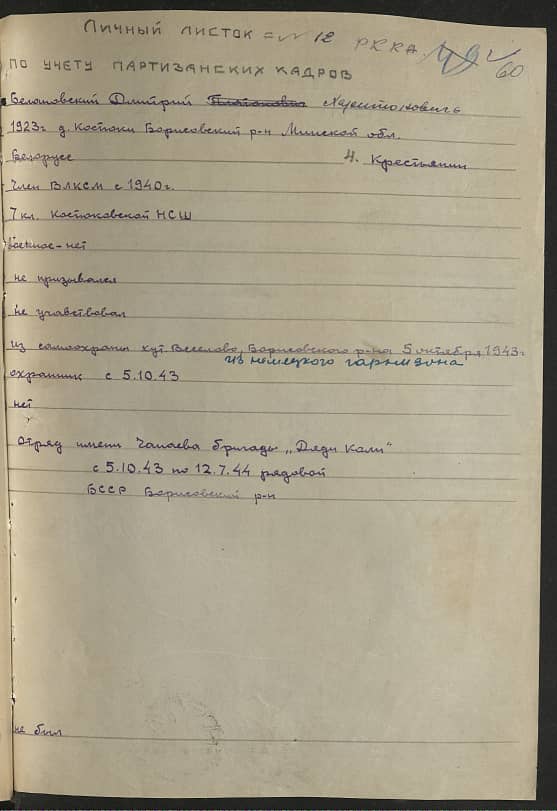 Личный листок = № 12 РККА
60
ПО УЧЕТУ ПАРТИЗАНСКИХ КАДРОВ
Дмитрий Платонович Харитонович
1923г д. Костюки Борисовский р-н Минской обл.
Белорусс 4. Крестьянин
Член ВЛКСМ с 1940г.
7 кл. Костюковской НСШ
военное-нет
не призывался
не учавствовал
из самоохраны хут. Веселово, Борисовского р-на 5 октября 1943г
из немецкого гарнизона
охранник с 5.10.43
нет
Отряд имени Чапаева бригады „Дяди Коли"
с 5.10.43 по 12.7.44 рядовой
БССР Борисовский р-н
не был